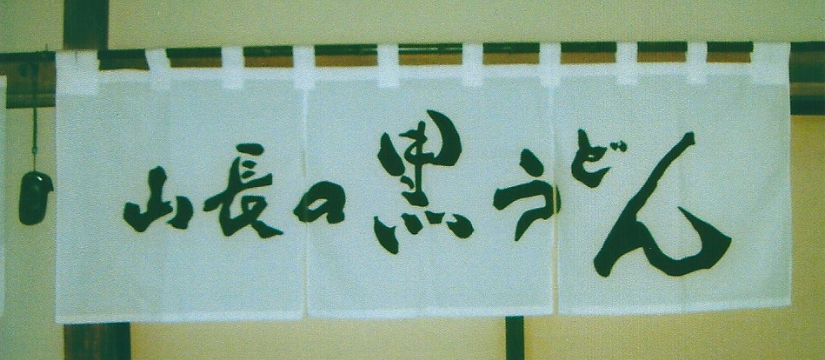 山長の黒うどん